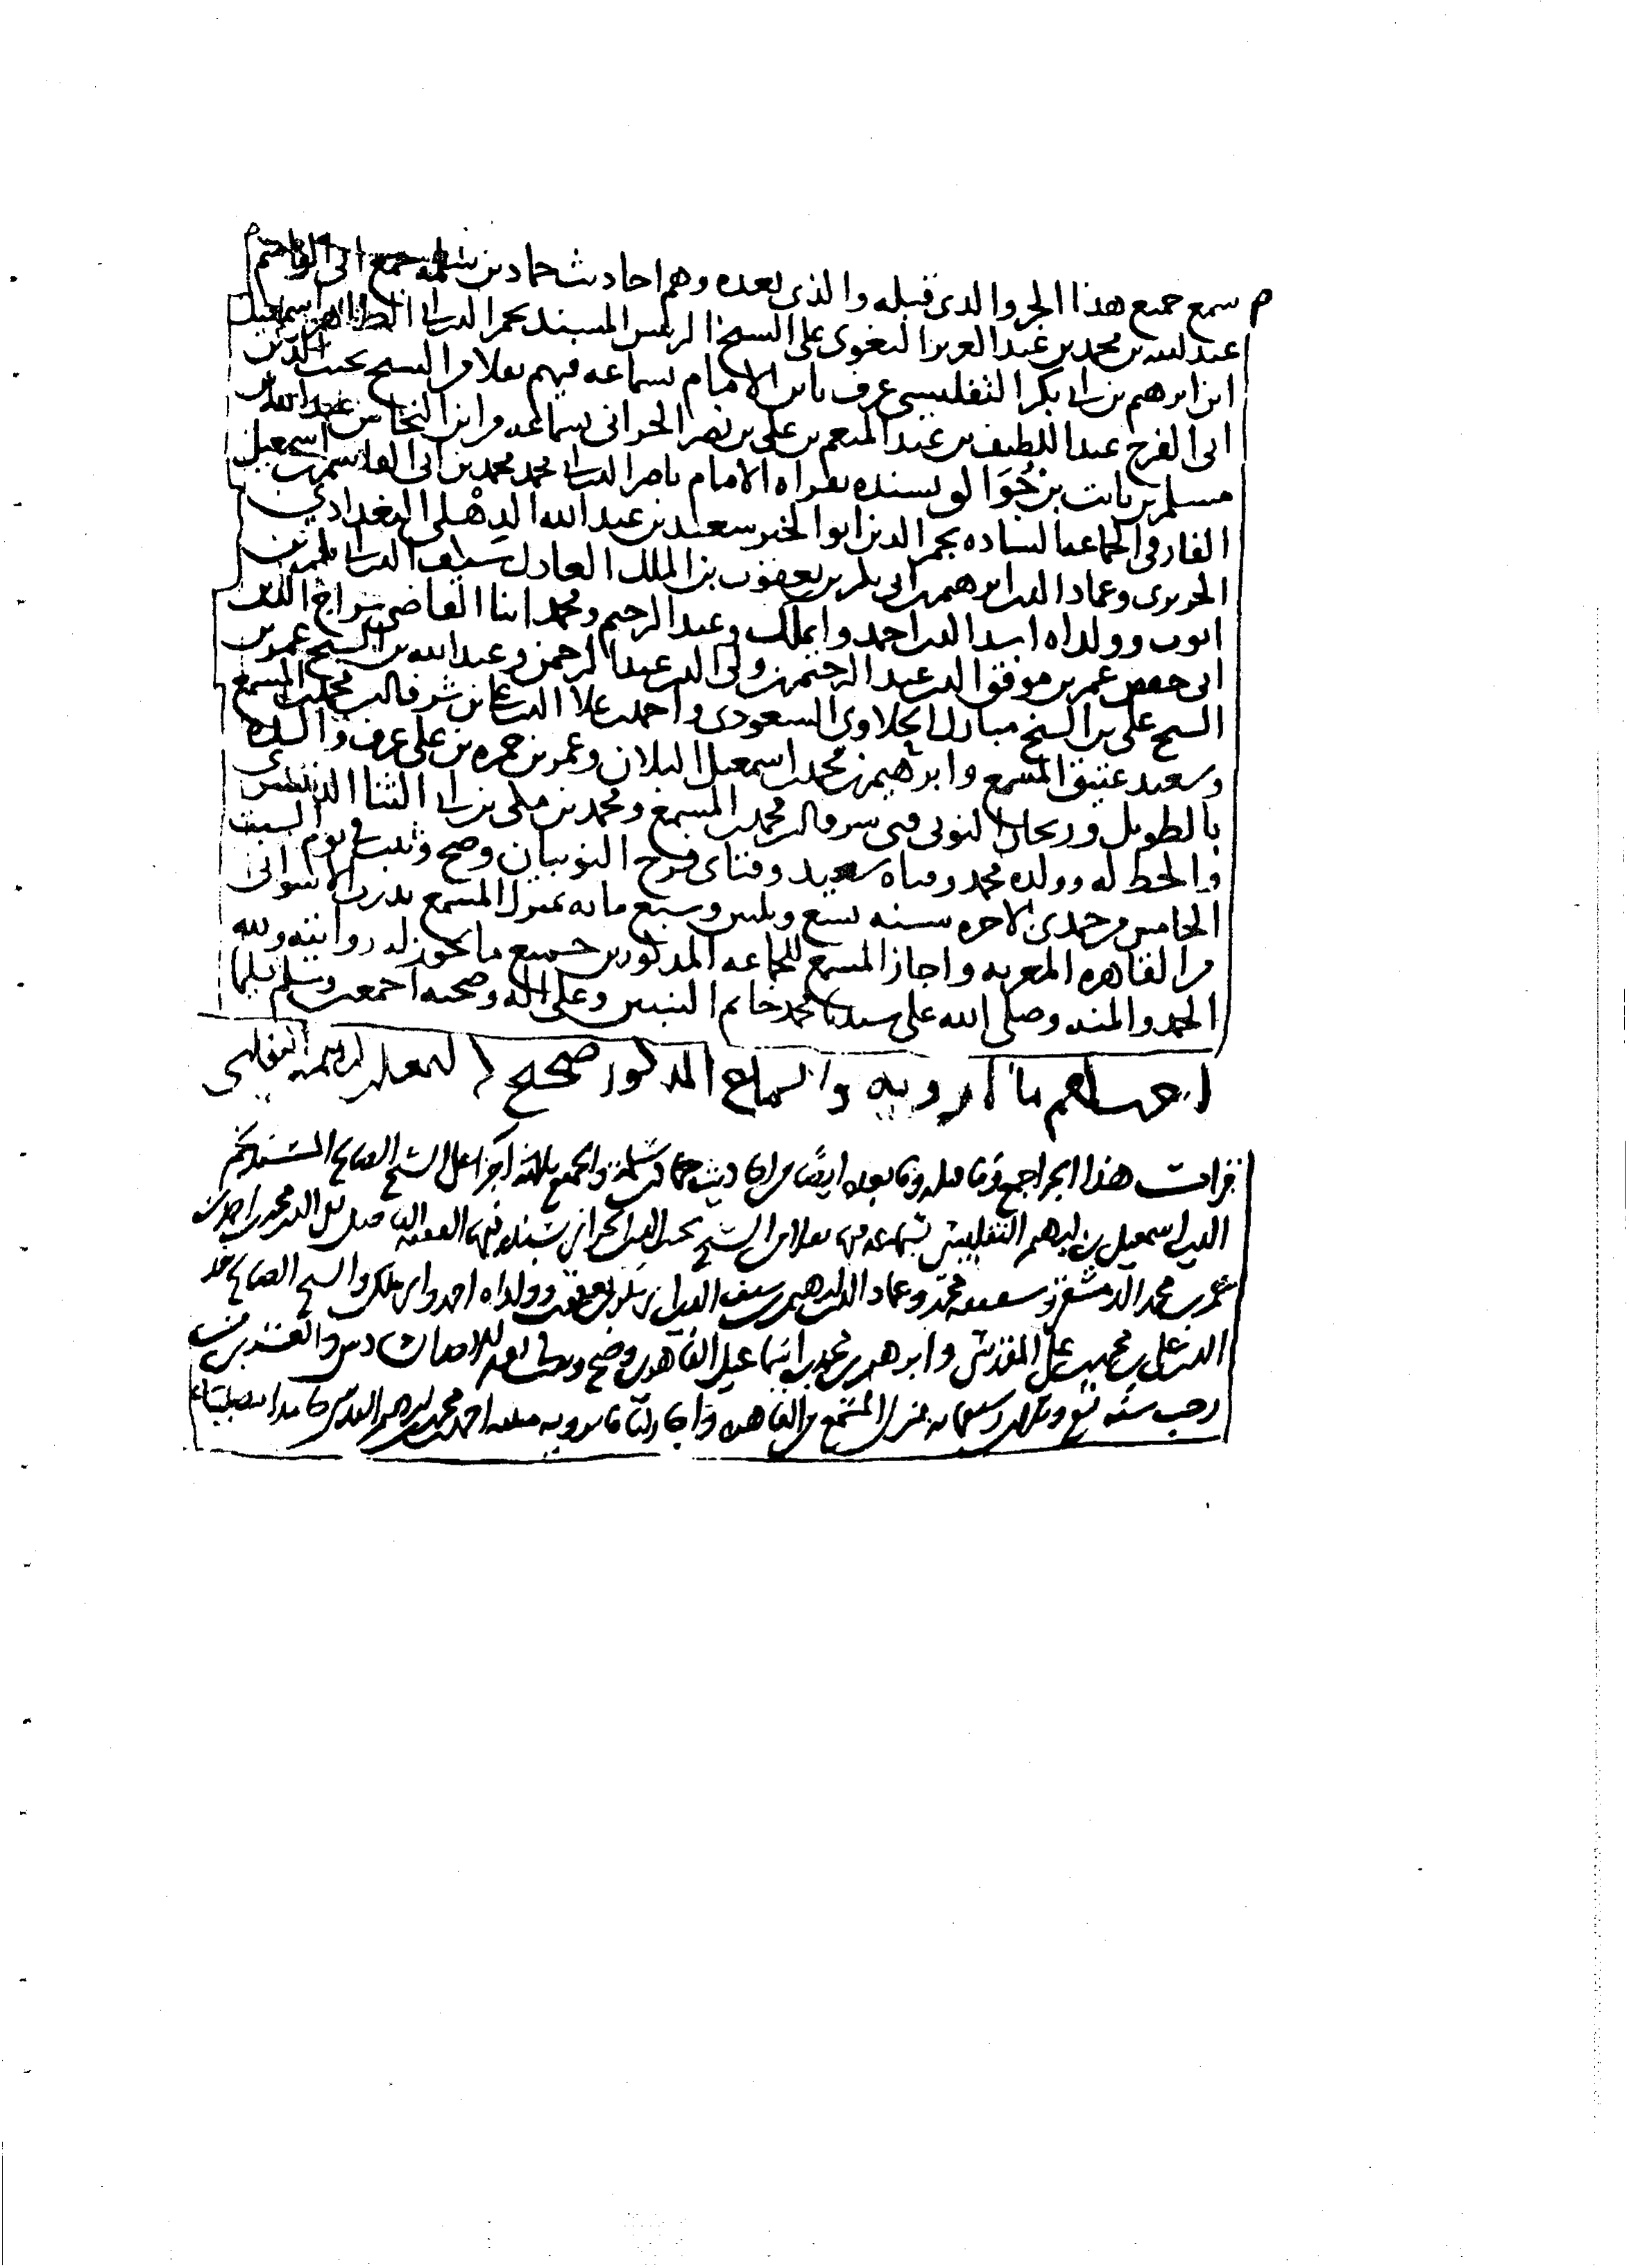 سمع جميع هذا الجزء والذي قبله والذي بعده وهم احاديث حماد بن سلمة جمع ابي القاسم
عبد الله بن محمد بن عبد العزيز البغوي على الشيخ الرئيس المسند نجم الدين ابي الطاهر اسمعيل
ابن ابرهيم بن ابي بكر التفليسي عرف بابن الامام بسماعه فيهم نقلا من الشيخ نجيب الدين
ابي الفرج عبد اللطيف بن عبد المنعم بن علي بن نصر الحراني بسماعه من ابن النخاس
مسلم بن ثابت بن جُوَالق بسنده بقراه الامام ناصر الدين محمد بن ابي القاسم بن اسمعيل
الفارقي الجماعه الساده نجم الدين ابو الخير سعيد بن عبد الله الدِهْلي البغدادي
الحريري وعماد الدين ابرهيم بن ابي بكر بن يعقوب بن الملك العادل سيف الدين ابي بكر بن
ايوب وولداه اسد الدين احمد وايملك وعبد الرحيم ومحمد ابنا القاضي سراج الدين
ابي حفص عمر بن موفق الدين عبد الرحمن وولي الدين عبد الرحمن وعبد الله بن الشيخ عمر بن
الشيخ علي بن الشيخ مبارك السعودي واحمد بن علا الدين علي بن شرف الدين محمد بن المسمع
وسعيد عتيق المسمع وابرهيم بن محمد بن اسمعيل البلان وعمر بن حمزه بن علي عرف والده
بالطويل وريحان النوبي فتى شرف الدين محمد بن المسمع ومحمد بن مكي بن ابي الثنا
والخط له وولده محمد وفتاه سعيد وفتاي فرح النوبيان وصح وثبت في يوم السبت
الخامس من جمدى الاخره سنه تسع وثلثين وسبع مايه بمنزل المسمع بدرب الاسواني
من القاهره المعزيه واجاز المسمع للجماعه المذكورين جميع ما يجوز له روايته ولله
الحمد والمنه وصلى الله على سيدنا محمد خاتم النبيين وعلى اله وصحبه اجمعين وسلم تسليما
اجزت لهم ما ارويه والسماع المذكور صحيح اسمعيل بن ابرهيم التفليسي
قرات هذا الجزء اجمع وما قبله وما بعده ايضا من احاديث حماد بن سلمة والجميع ثلثه اجزا على الشيخ الصالح المسند نجم
الدين اسمعيل بن ابرهيم التفليسي بسماعه فيها نقلا من الشيخ نجيب الدين الحراني بسنده فيها الفقيه الفاضل الدين محمد بن احمد بن
عمر بن محمد الدمشقي وشقيقه محمد وعماد الدين ابرهيم بن سيف الدين ابي بكر بن يعقوب وولداه احمد وايملك والشيخ الصالح
الدين علي بن محمد بن علي المقدسي وابرهيم بن محمد بن اسماعيل القاهري وصح وثبت السادس والعشرين من
رجب سنه تسع وثلاثين وسبعمايه بمنزل المسمع من القاهره واجاز لنا ما يرويه احمد بن محمد بن ابرهيم المقدسي حامدا مصليا